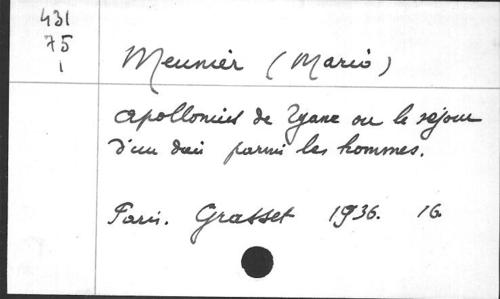 431
75
1
Meunier (Mario)
Apollonius de Tyane ou le séjour
d'un dieu parmi les hommes.
Paris. Grasset 1936. 16.